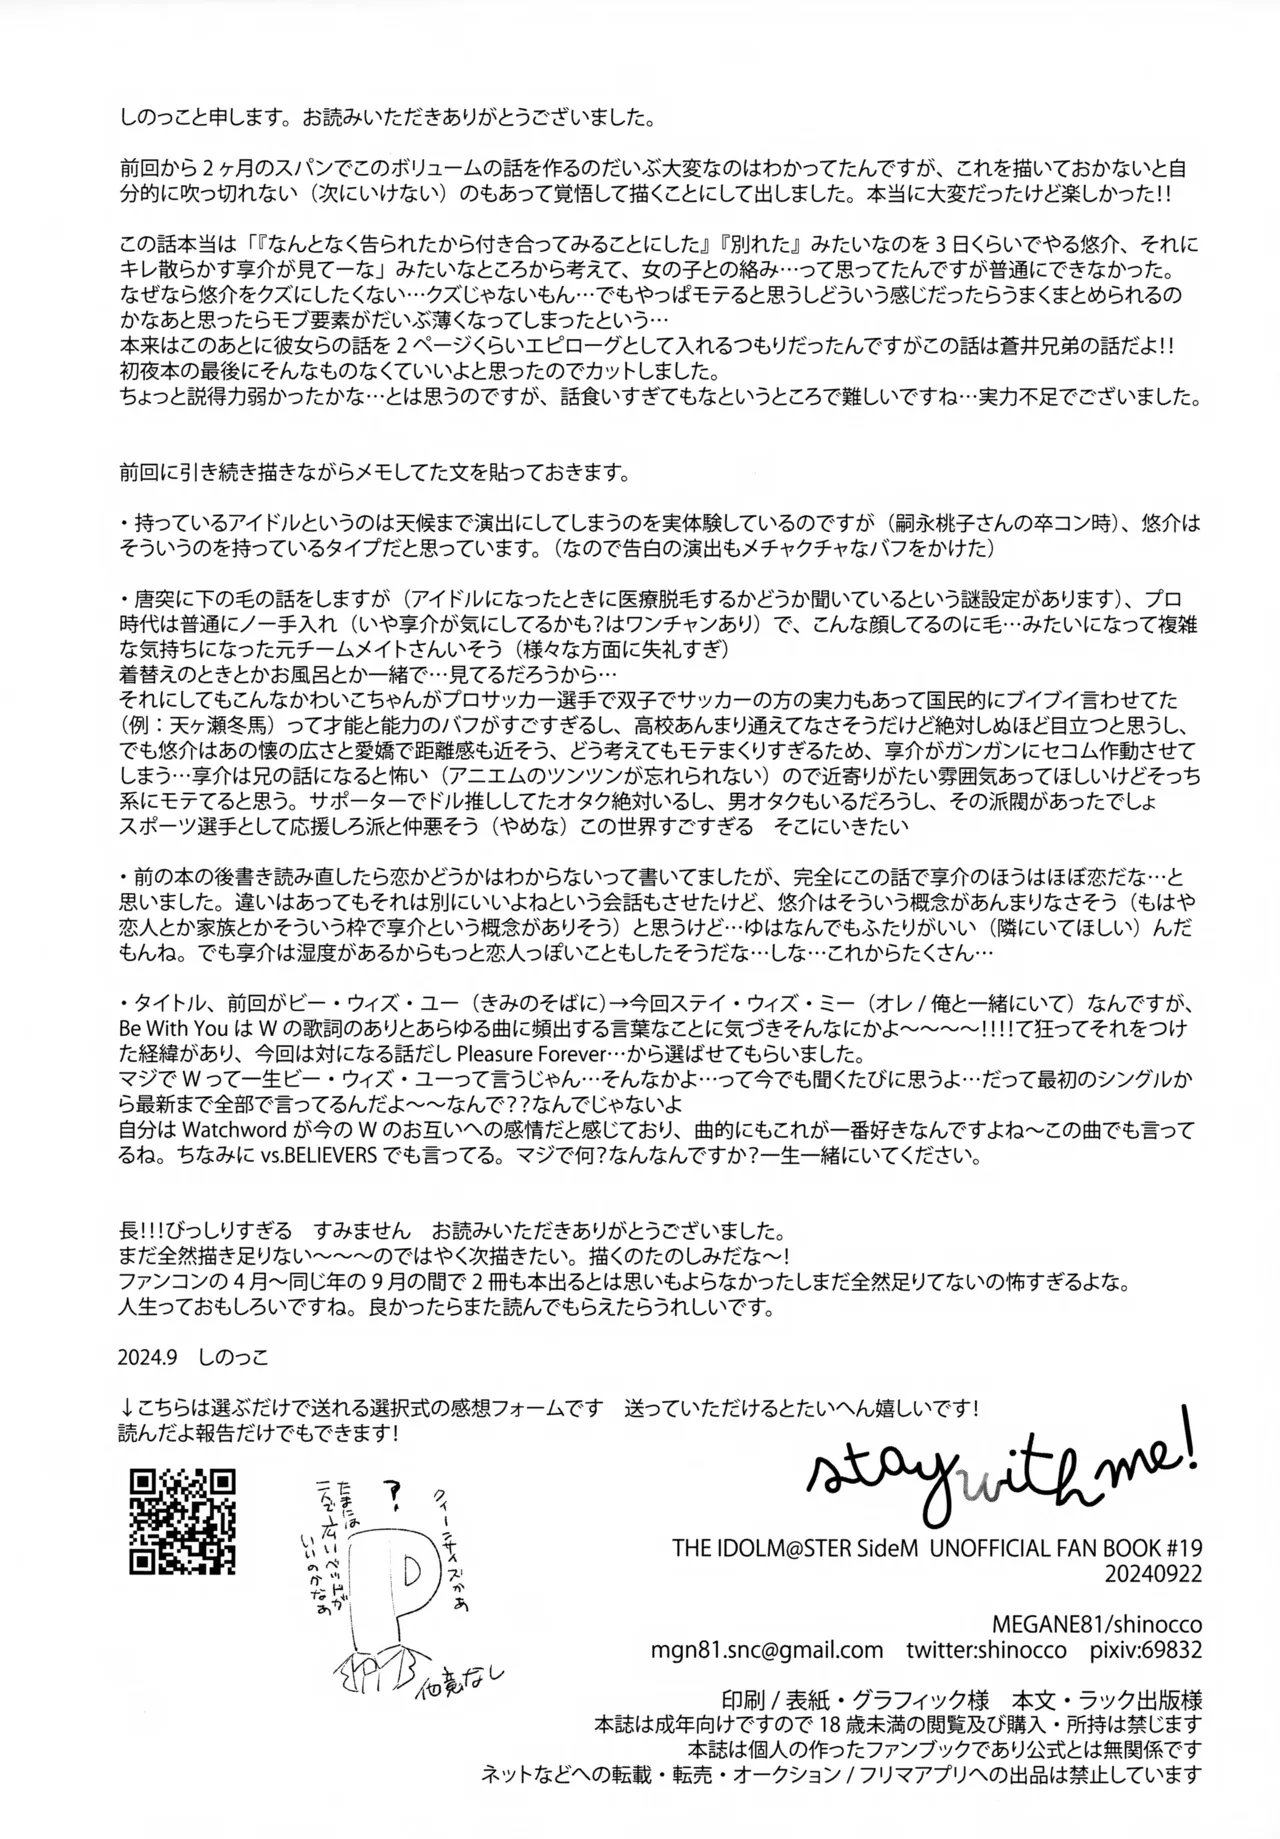 しのっこと申します。お読みいただきありがとうございました。
前回から2ヶ月のスパンでこのボリュームの話を作るのだいぶ大変なのはわかってたんですが、これを描いておかないと自
分的に吹っ切れない（次にいけない）のもあって覚悟して描くことにして出しました。本当に大変だったけど楽しかった!!
この話本当は「『なんとなく告られたから付き合ってみることにした』『別れた』みたいなのを3日くらいでやる悠介、それに
キレ散らかす享介が見てーな」みたいなところから考えて、女の子との絡み…って思ってたんですが普通にできなかった。
なぜなら悠介をクズにしたくない…クズじゃないもん…でもやっぱモテると思うしどういう感じだったらうまくまとめられるの
かなあと思ったらモブ要素がだいぶ薄くなってしまったという…
本来はこのあとに彼女らの話を2ページくらいエピローグとして入れるつもりだったんですがこの話は蒼井兄弟の話だよ!!
初夜本の最後にそんなものなくていいよと思ったのでカットしました。
ちょっと説得力弱かったかな…とは思うのですが、話食いすぎてもなというところで難しいですね…実力不足でございました。
前回に引き続き描きながらメモしてた文を貼っておきます。
・持っているアイドルというのは天候まで演出にしてしまうのを実体験しているのですが（嗣永桃子さんの卒コン時）、悠介は
そういうのを持っているタイプだと思っています。（なので告白の演出もメチャクチャなバフをかけた）
・唐突に下の毛の話をしますが（アイドルになったときに医療脱毛するかどうか聞いているという謎設定があります）、プロ
時代は普通にノー手入れ（いや享介が気にしてるかも?はワンチャンあり）で、こんな顔してるのに毛…みたいになって複雑
な気持ちになった元チームメイトさんいそう（様々な方面に失礼すぎ）
着替えのときとかお風呂とか一緒で…見てるだろうから…
それにしてもこんなかわいこちゃんがプロサッカー選手で双子でサッカーの方の実力もあって国民的にブイブイ言わせてた
（例：天ヶ瀬冬馬）って才能と能力のバフがすごすぎるし、高校あんまり通えてなさそうだけど絶対しぬほど目立つと思うし、
でも悠介はあの懐の広さと愛嬌で距離感も近そう、どう考えてもモテまくりすぎるため、享介がガンガンにセコム作動させて
しまう…享介は兄の話になると怖い（アニエムのツンツンが忘れられない）ので近寄りがたい雰囲気あってほしいけどそっち
系にモテてると思う。サポーターでドル推ししてたオタク絶対いるし、男オタクもいるだろうし、その派閥があったでしょ
スポーツ選手として応援しろ派と仲悪そう（やめな）この世界すごすぎる　そこにいきたい
・前の本の後書き読み直したら恋かどうかはわからないって書いてましたが、完全にこの話で享介のほうはほぼ恋だな…と
思いました。違いはあってもそれは別にいいよねという会話もさせたけど、悠介はそういう概念があんまりなさそう（もはや
恋人とか家族とかそういう枠で享介という概念がありそう）と思うけど…ゆはなんでもふたりがいい（隣にいてほしい）んだ
もんね。でも享介は湿度があるからもっと恋人っぽいこともしたそうだな…しな…これからたくさん…
・タイトル、前回がビー・ウィズ・ユー（きみのそばに）→今回ステイ・ウィズ・ミー（オレ/俺と一緒にいて）なんですが、
Be With YouはWの歌詞のありとあらゆる曲に頻出する言葉なことに気づきそんなにかよ〜〜〜〜!!!!て狂ってそれをつけ
た経緯があり、今回は対になる話だしPleasure Forever…から選ばせてもらいました。
マジでWって一生ビー・ウィズ・ユーって言うじゃん…そんなかよ…って今でも聞くたびに思うよ…だって最初のシングルか
ら最新まで全部で言ってるんだよ〜〜なんで??なんでじゃないよ
自分はWatchwordが今のWのお互いへの感情だと感じており、曲的にもこれが一番好きなんですよね〜この曲でも言って
るね。ちなみにvs.BELIEVERSでも言ってる。マジで何?なんなんですか?一生一緒にいてください。
長!!!びっしりすぎる　すみません　お読みいただきありがとうございました。
まだ全然描き足りない〜〜〜のではやく次描きたい。描くのたのしみだな〜!
ファンコンの4月〜同じ年の9月の間で2冊も本出るとは思いもよらなかったしまだ全然足りてないの怖すぎるよな。
人生っておもしろいですね。良かったらまた読んでもらえたらうれしいです。
2024.9　しのっこ
↓こちらは選ぶだけで送れる選択式の感想フォームです　送っていただけるとたいへん嬉しいです!
読んだよ報告だけでもできます!
クィーンサイズかぁ
?
たまには
こんで広いベッドが
いいのかなぁ
P
他意なし
stay with me!
THE IDOLM@STER SideM UNOFFICIAL FAN BOOK #19
20240922
MEGANE81/shinocco
mgn81.snc@gmail.com　twitter:shinocco　pixiv:69832
印刷/表紙・グラフィック様　本文・ラック出版様
本誌は成年向けですので18歳未満の閲覧及び購入・所持は禁じます
本誌は個人の作ったファンブックであり公式とは無関係です
ネットなどへの転載・転売・オークション/フリマアプリへの出品は禁止しています